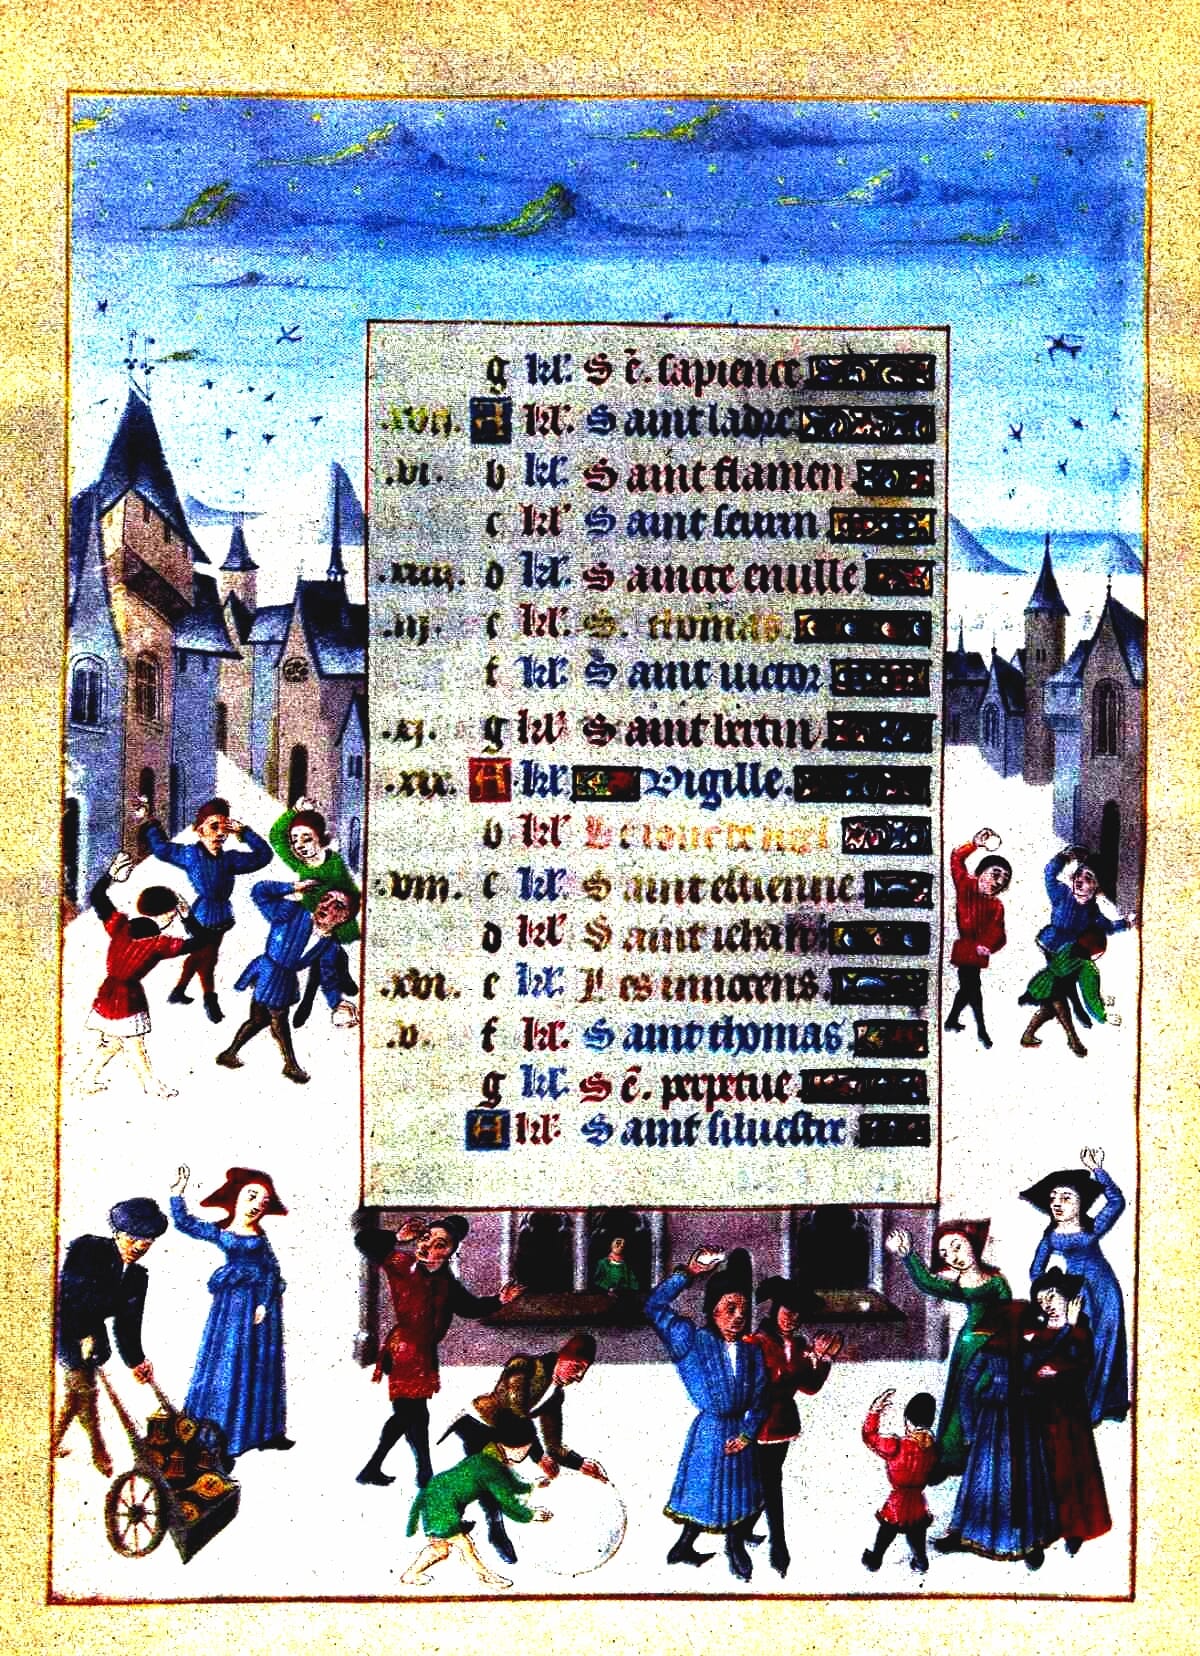 g kł. S ẽ. sapience
.xvij. A kł. Saint ladre
.vi. b kł. Saint flamen
c kł. Saint
.xiiij. d kł. Saincte
.iij. e kł. S. thomas.
f kł. Saint victor
.xj. g kł. Saint
.xix. A kł. Vigille.
b kł.
.viij. c kł. Saint estienne
d kł. Saint iehan
.xvi. e kł. Les innocens.
.v. f kł. Saint thomas.
g kł. S ẽ. perpetue
A kł. Saint siluestre